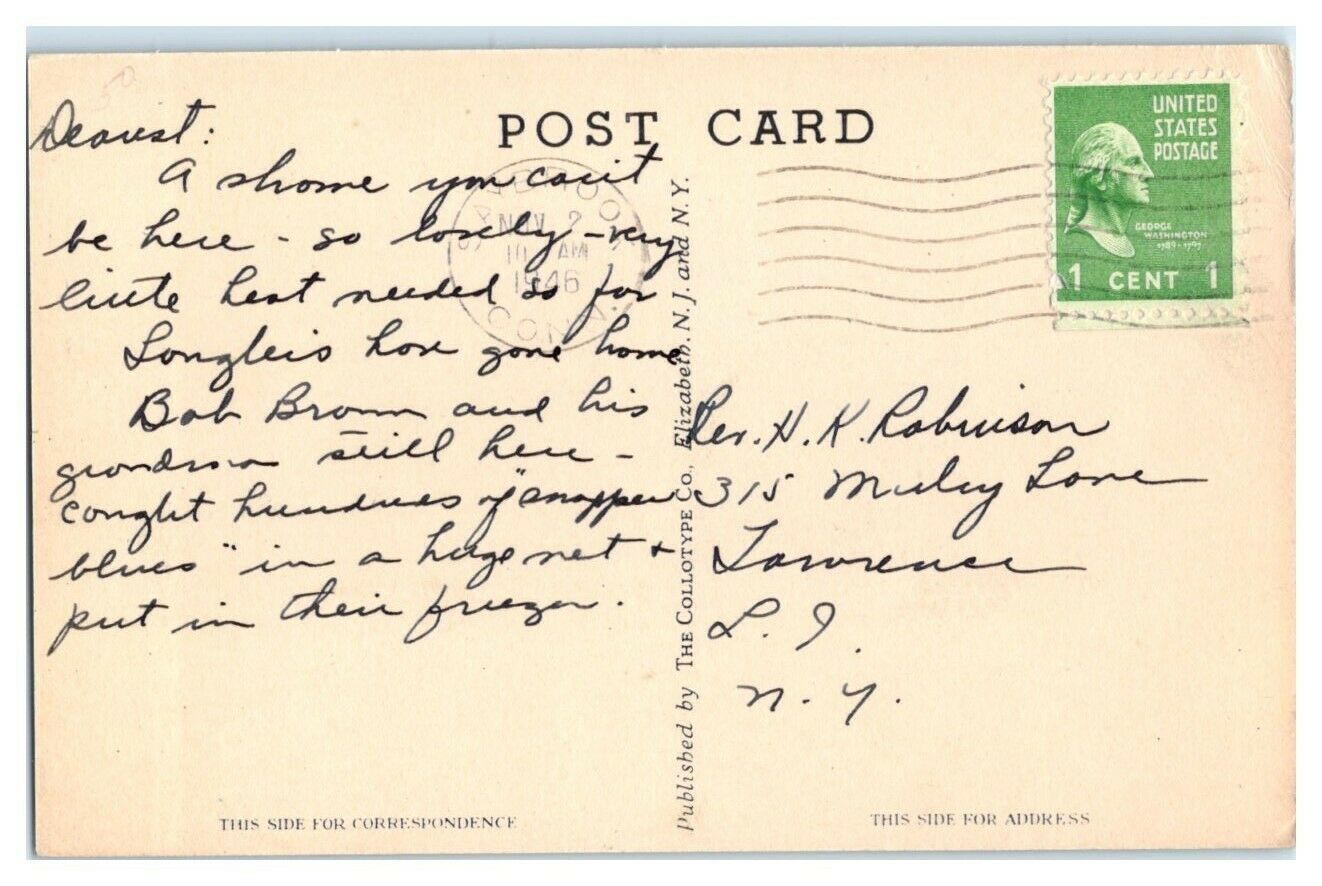 POST CARD
Dearest:
A shame you can't
be here - so lovely - very
little heat needed so far
have gone home
Bob Brown and his
grandma still here -
caught hundreds of "snapper
blues" in a huge net +
put in their freezer.
NOV 2
10 AM
1946
CONN.
UNITED
STATES
POSTAGE
GEORGE
WASHINGTON
1789-1797
1 CENT 1
Rev. H. K. Robinson
315 Mulry Lane
Lawrence
L. I.
N. Y.
Published by THE COLLOTYPE CO., Elizabeth, N. J. and N. Y.
THIS SIDE FOR CORRESPONDENCE
THIS SIDE FOR ADDRESS